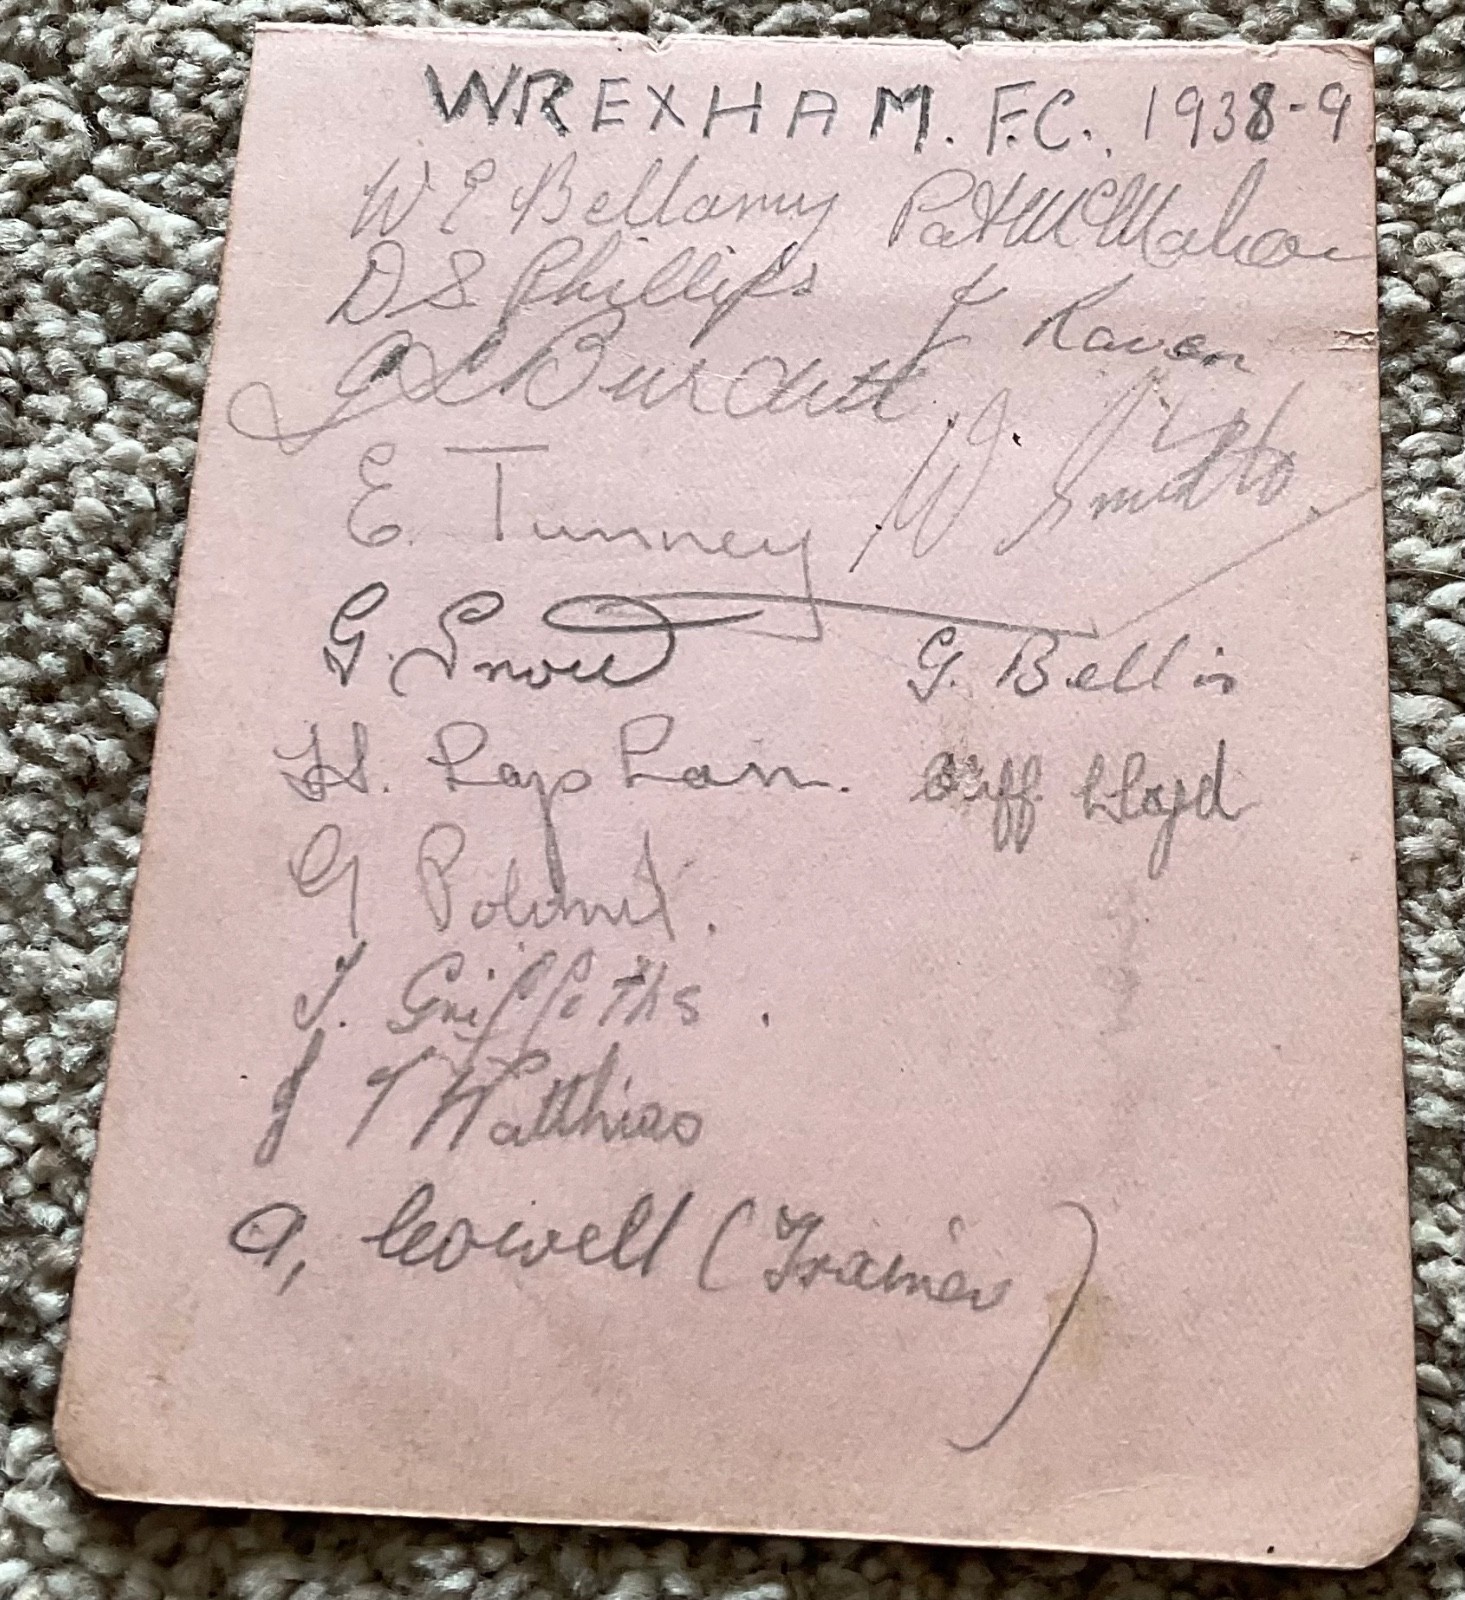 WREXHAM. F.C. 1938-9
W E Bellamy Pat McMahon
D S Phillips J Raven
Burditt
E. Tunney W. Smith
G. Snow G. Bellis
H. Lapham. Cliff Lloyd
G
T. Griffiths.
J T Matthias
A, Cowell (Trainer)